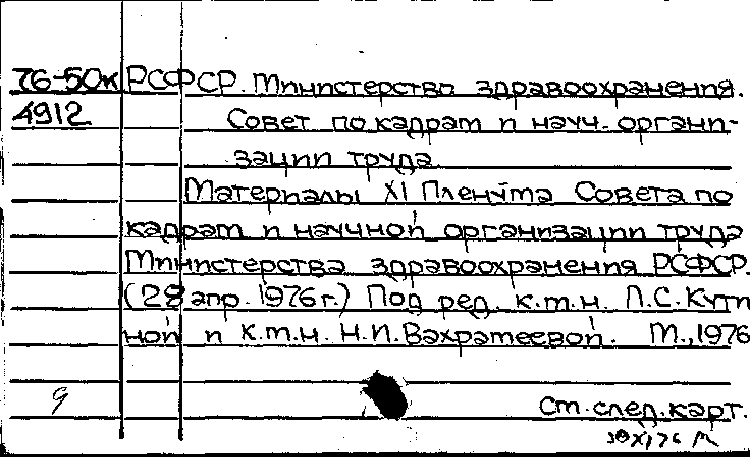 76-50к РСФСР. Министерство здравоохранения.
4912 Совет по кадрам и науч. органи-
зации труда.
Материалы XI Пленума Совета по
кадрам и научной организации труда
Министерства здравоохранения РСФСР.
(28 апр. 1976г.) Под ред. к.м.н. Л.С.Кут
ной и к.м.н. Н.И.Вахрамеевой. М., 1976
9 См. след. карт.